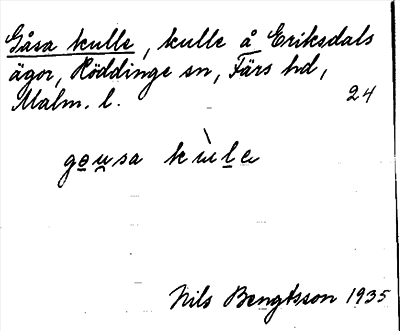 Gåsa kulle, kulle å Eriksdals
ägor, Röddinge sn, Färs hd,
Malm. l. 24
geusa kùle
Nils Bengtsson 1935